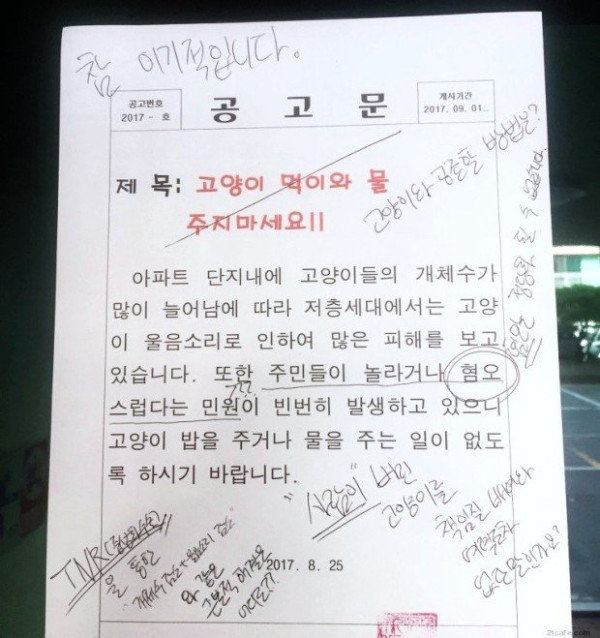 참 이기적입니다.
공고번호
2017 - 호
공 고 문
게시기간
2017. 09. 01..
제 목: 고양이 먹이와 물
주지마세요!!
고양이와 공존할 방법은?
아파트 단지내에 고양이들의 개체수가
많이 늘어남에 따라 저층세대에서는 고양
이 울음소리로 인하여 많은 피해를 보고
있습니다. 또한 주민들이 놀라거나 혐오
스럽다는 민원이 빈번히 발생하고 있으니
고양이 밥을 주거나 물을 주는 일이 없도
록 하시기 바랍니다.
??
"사람이" 버린
고양이를
책임질 배려나
여유조차
없는 것인가요?
TNR(중성화수술)
을 통한
"개체수 감소+울음소리 감소"
와 같은
근본적 해결은
어떤가?
2017. 8. 25